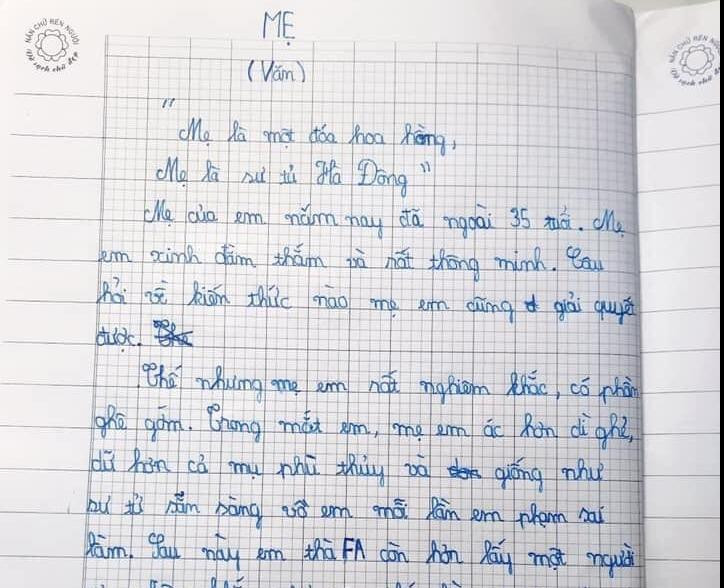 NẮN CHỮ RÈN NGƯỜI
Vở sạch chữ đẹp
NẮN CHỮ RÈN
Vở sạch chữ đẹp
MẸ
(Văn)
"
Mẹ là một đóa hoa hồng,
Mẹ là sư tử Hà Đông"
Mẹ của em năm nay đã ngoài 35 tuổi. Mẹ
em xinh đằm thắm và rất thông minh. Câu
hỏi về kiến thức nào mẹ em cũng giải quyết
được.
Thế nhưng mẹ em rất nghiêm khắc, có phần
ghê gớm. Trong mắt em, mẹ em ác hơn dì ghẻ,
dữ hơn cả mụ phù thủy và giống như
sư tử sẵn sàng vồ em mỗi lần em phạm sai
lầm. Sau này em thà FA còn hơn lấy một người